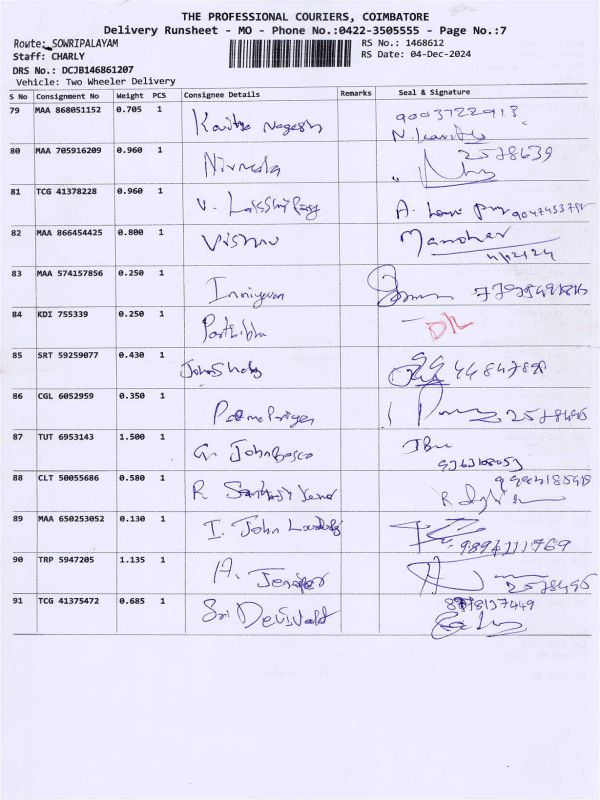 THE PROFESSIONAL COURIERS, COIMBATORE
Delivery Runsheet - MO - Phone No.:0422-3505555 - Page No.:7
Route: SOWRIPALAYAM RS No.: 1468612
Staff: CHARLY RS Date: 04-Dec-2024
DRS No.: DCJB146861207
Vehicle: Two Wheeler Delivery
S No Consignment No Weight PCS Consignee Details Remarks Seal & Signature
79 MAA 868051152 0.705 1 Kavitha Nagesh 9003722913
80 MAA 705916209 0.960 1 Nirmala 2578639
81 TCG 41378228 0.960 1 V.
82 MAA 866454425 0.800 1 Vishnu Manoher
4/12/24
83 MAA 574157856 0.250 1
84 KDI 755339 0.250 1 D/L
85 SRT 59259077 0.430 1
86 CGL 6052959 0.350 1 2578495
87 TUT 6953143 1.500 1 G. John Bosco
88 CLT 50055686 0.580 1 R
89 MAA 650253052 0.130 1 I. John 9894111769
90 TRP 5947205 1.135 1 A. Jenifer 2578495
91 TCG 41375472 0.685 1 Sri